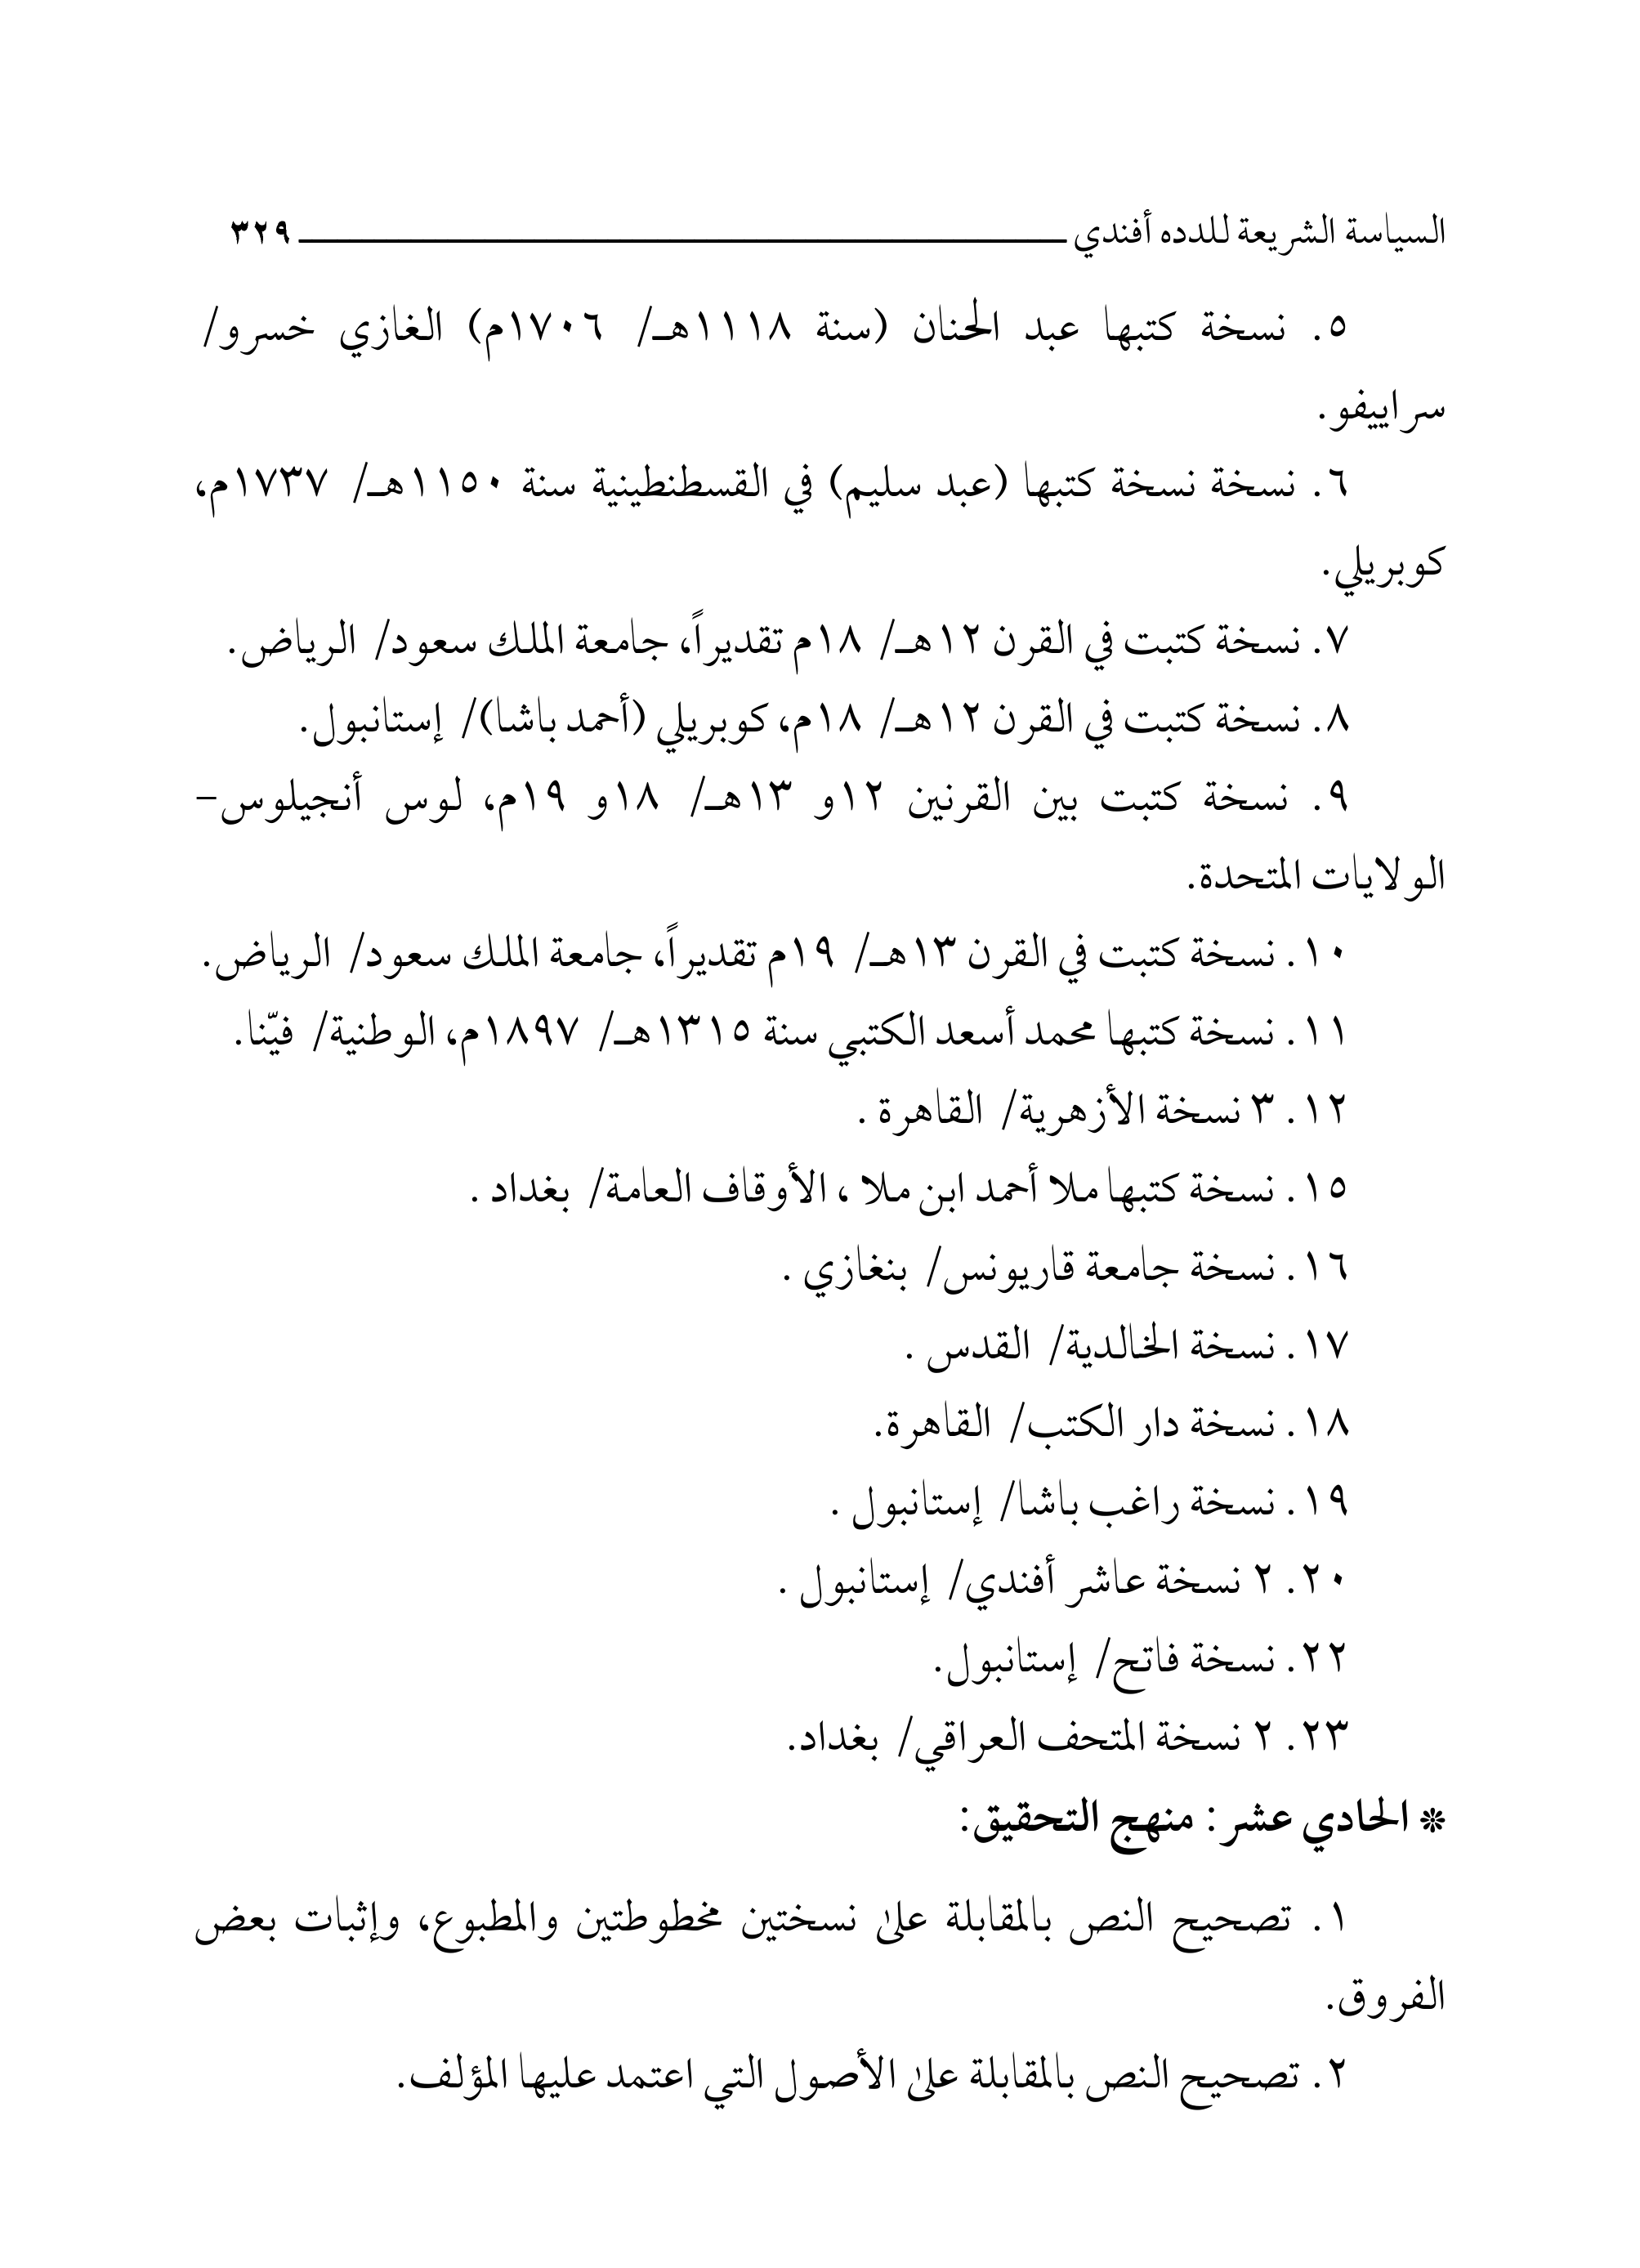 السياسة الشريعة للدده أفندي ٣٢٩
٥. نسخة كتبها عبد الحنان (سنة ١١١٨هـ/ ١٧٠٦م) الغازي خسرو/
سراييفو.
٦. نسخة نسخة كتبها (عبد سليم) في القسطنطينية سنة ١١٥٠هـ/ ١٧٣٧م،
كوبريلي.
٧. نسخة كتبت في القرن ١٢هـ/ ١٨م تقديراً، جامعة الملك سعود/ الرياض.
٨. نسخة كتبت في القرن ١٢هـ/ ١٨م، كوبريلي (أحمد باشا)/ إستانبول.
٩. نسخة كتبت بين القرنين ١٢و ١٣هـ/ ١٨و ١٩م، لوس أنجيلوس-
الولايات المتحدة.
١٠. نسخة كتبت في القرن ١٣هـ/ ١٩م تقديراً، جامعة الملك سعود/ الرياض.
١١. نسخة كتبها محمد أسعد الكتبي سنة ١٣١٥هـ/ ١٨٩٧م، الوطنية/ فيّنا.
١٢. ٣ نسخة الأزهرية/ القاهرة .
١٥. نسخة كتبها ملا أحمد ابن ملا ، الأوقاف العامة/ بغداد .
١٦. نسخة جامعة قاريونس/ بنغازي .
١٧. نسخة الخالدية/ القدس .
١٨. نسخة دار الكتب/ القاهرة.
١٩. نسخة راغب باشا/ إستانبول .
٢٠. ٢ نسخة عاشر أفندي/ إستانبول .
٢٢. نسخة فاتح/ إستانبول.
٢٣. ٢ نسخة المتحف العراقي/ بغداد.
❊ الحادي عشر: منهج التحقيق:
١. تصحيح النص بالمقابلة علىٰ نسختين مخطوطتين والمطبوع، وإثبات بعض
الفروق.
٢. تصحيح النص بالمقابلة علىٰ الأصول التي اعتمد عليها المؤلف.